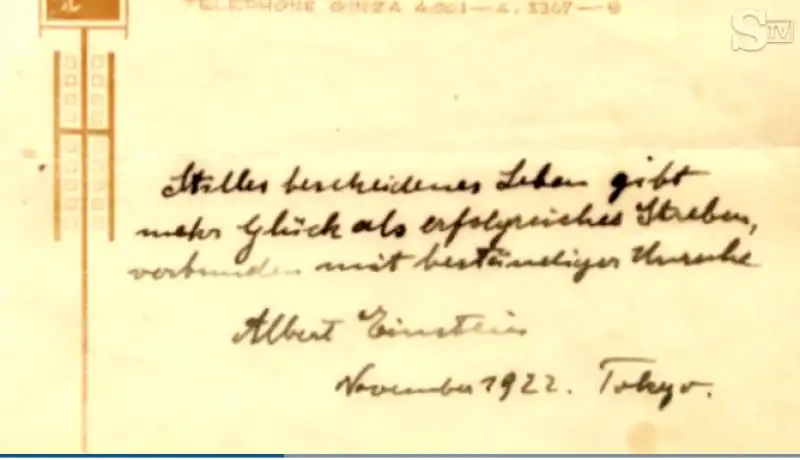 TELEPHONE GINZA
STV
Stilles bescheidenes Leben gibt
mehr Glück als erfolgreiches Streben,
verbunden mit beständiger Unruhe
Albert Einstein
November 1922. Tokyo.